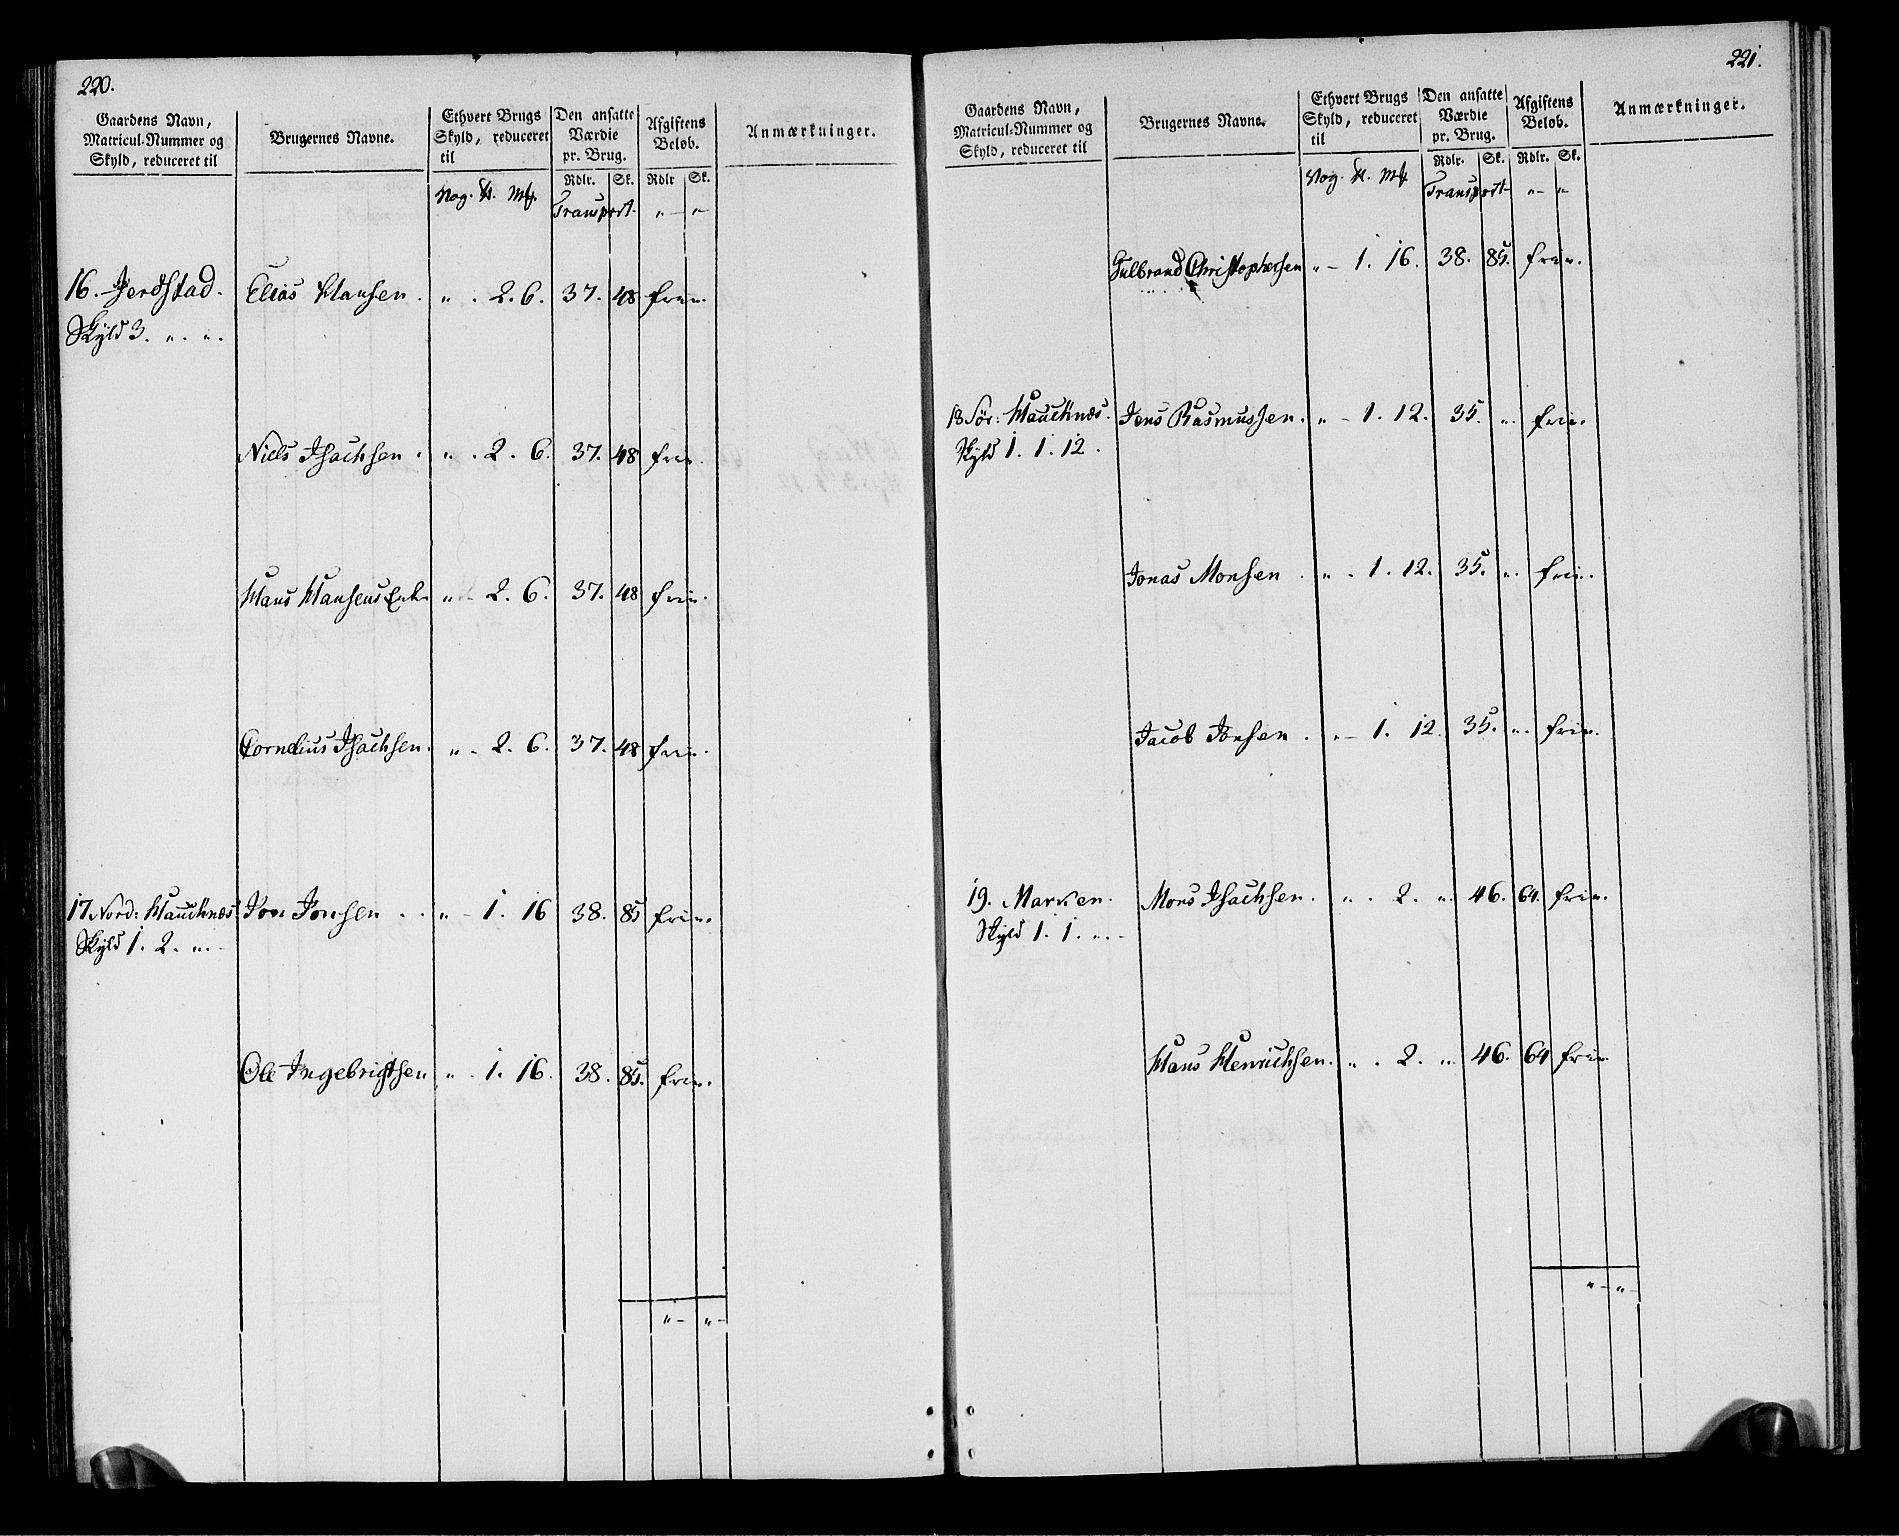 220.
Gaardens Navn, Matricul-Nummer og Skyld, reduceret til | Brugernes Navne. | Ethvert Brugs Skyld, reduceret til | Den ansatte Værdie pr. Brug. | Afgiftens Beløb. | Anmærkninger.
Vog. ℔. Mk. | Rdlr. Sk. | Rdlr Sk.
Transport. „ – „ –
16. Jerdstad. Elias Hansen . „ . 2. 6. 37. 48 frie.
Skyld 3. „ . „ .
Niels Isachsen . „ . 2. 6. 37. 48 frie.
Hans Hansens Enke „ – 2. 6. 37. 48 frie.
Cornelius Isachsen. „ – 2. 6. 37. 48 frie.
17 Nord: Hauchnæs Jon Jonsen . . „ – 1. 16 38. 85 frie.
Skyld 1. 2. „ . –
Ole Ingebrigtsen „ . 1. 16. 38. 85. frie.
„ – „ –
221.
Gaardens Navn, Matricul-Nummer og Skyld, reduceret til | Brugernes Navne. | Ethvert Brugs Skyld, reduceret til | Den ansatte Værdie pr. Brug. | Afgiftens Beløb. | Anmærkninger.
Vog. ℔. Mk. | Rdlr. Sk. | Rdlr. Sk.
Transport – „ – „
Gulbrand Christophersen „ – 1. 16. 38. 85. frie.
18 Sör: Hauchnæs. Jens Rasmussen. „ – 1. 12. 35. „ . frie.
Skyld 1. 1. 12.
Jonas Monsen . „ . 1. 12. 35. „ . frie.
Jacob Jonsen . „ – 1. 12. 35. „ . frie.
19. Marken. Mons Isachsen. „ . 2. „ . 46. 64. frie.
Skyld 1. 1. „ . –
Hans Henrichsen. „ . 2. „ . 46. 64 frie.
„ – „ –